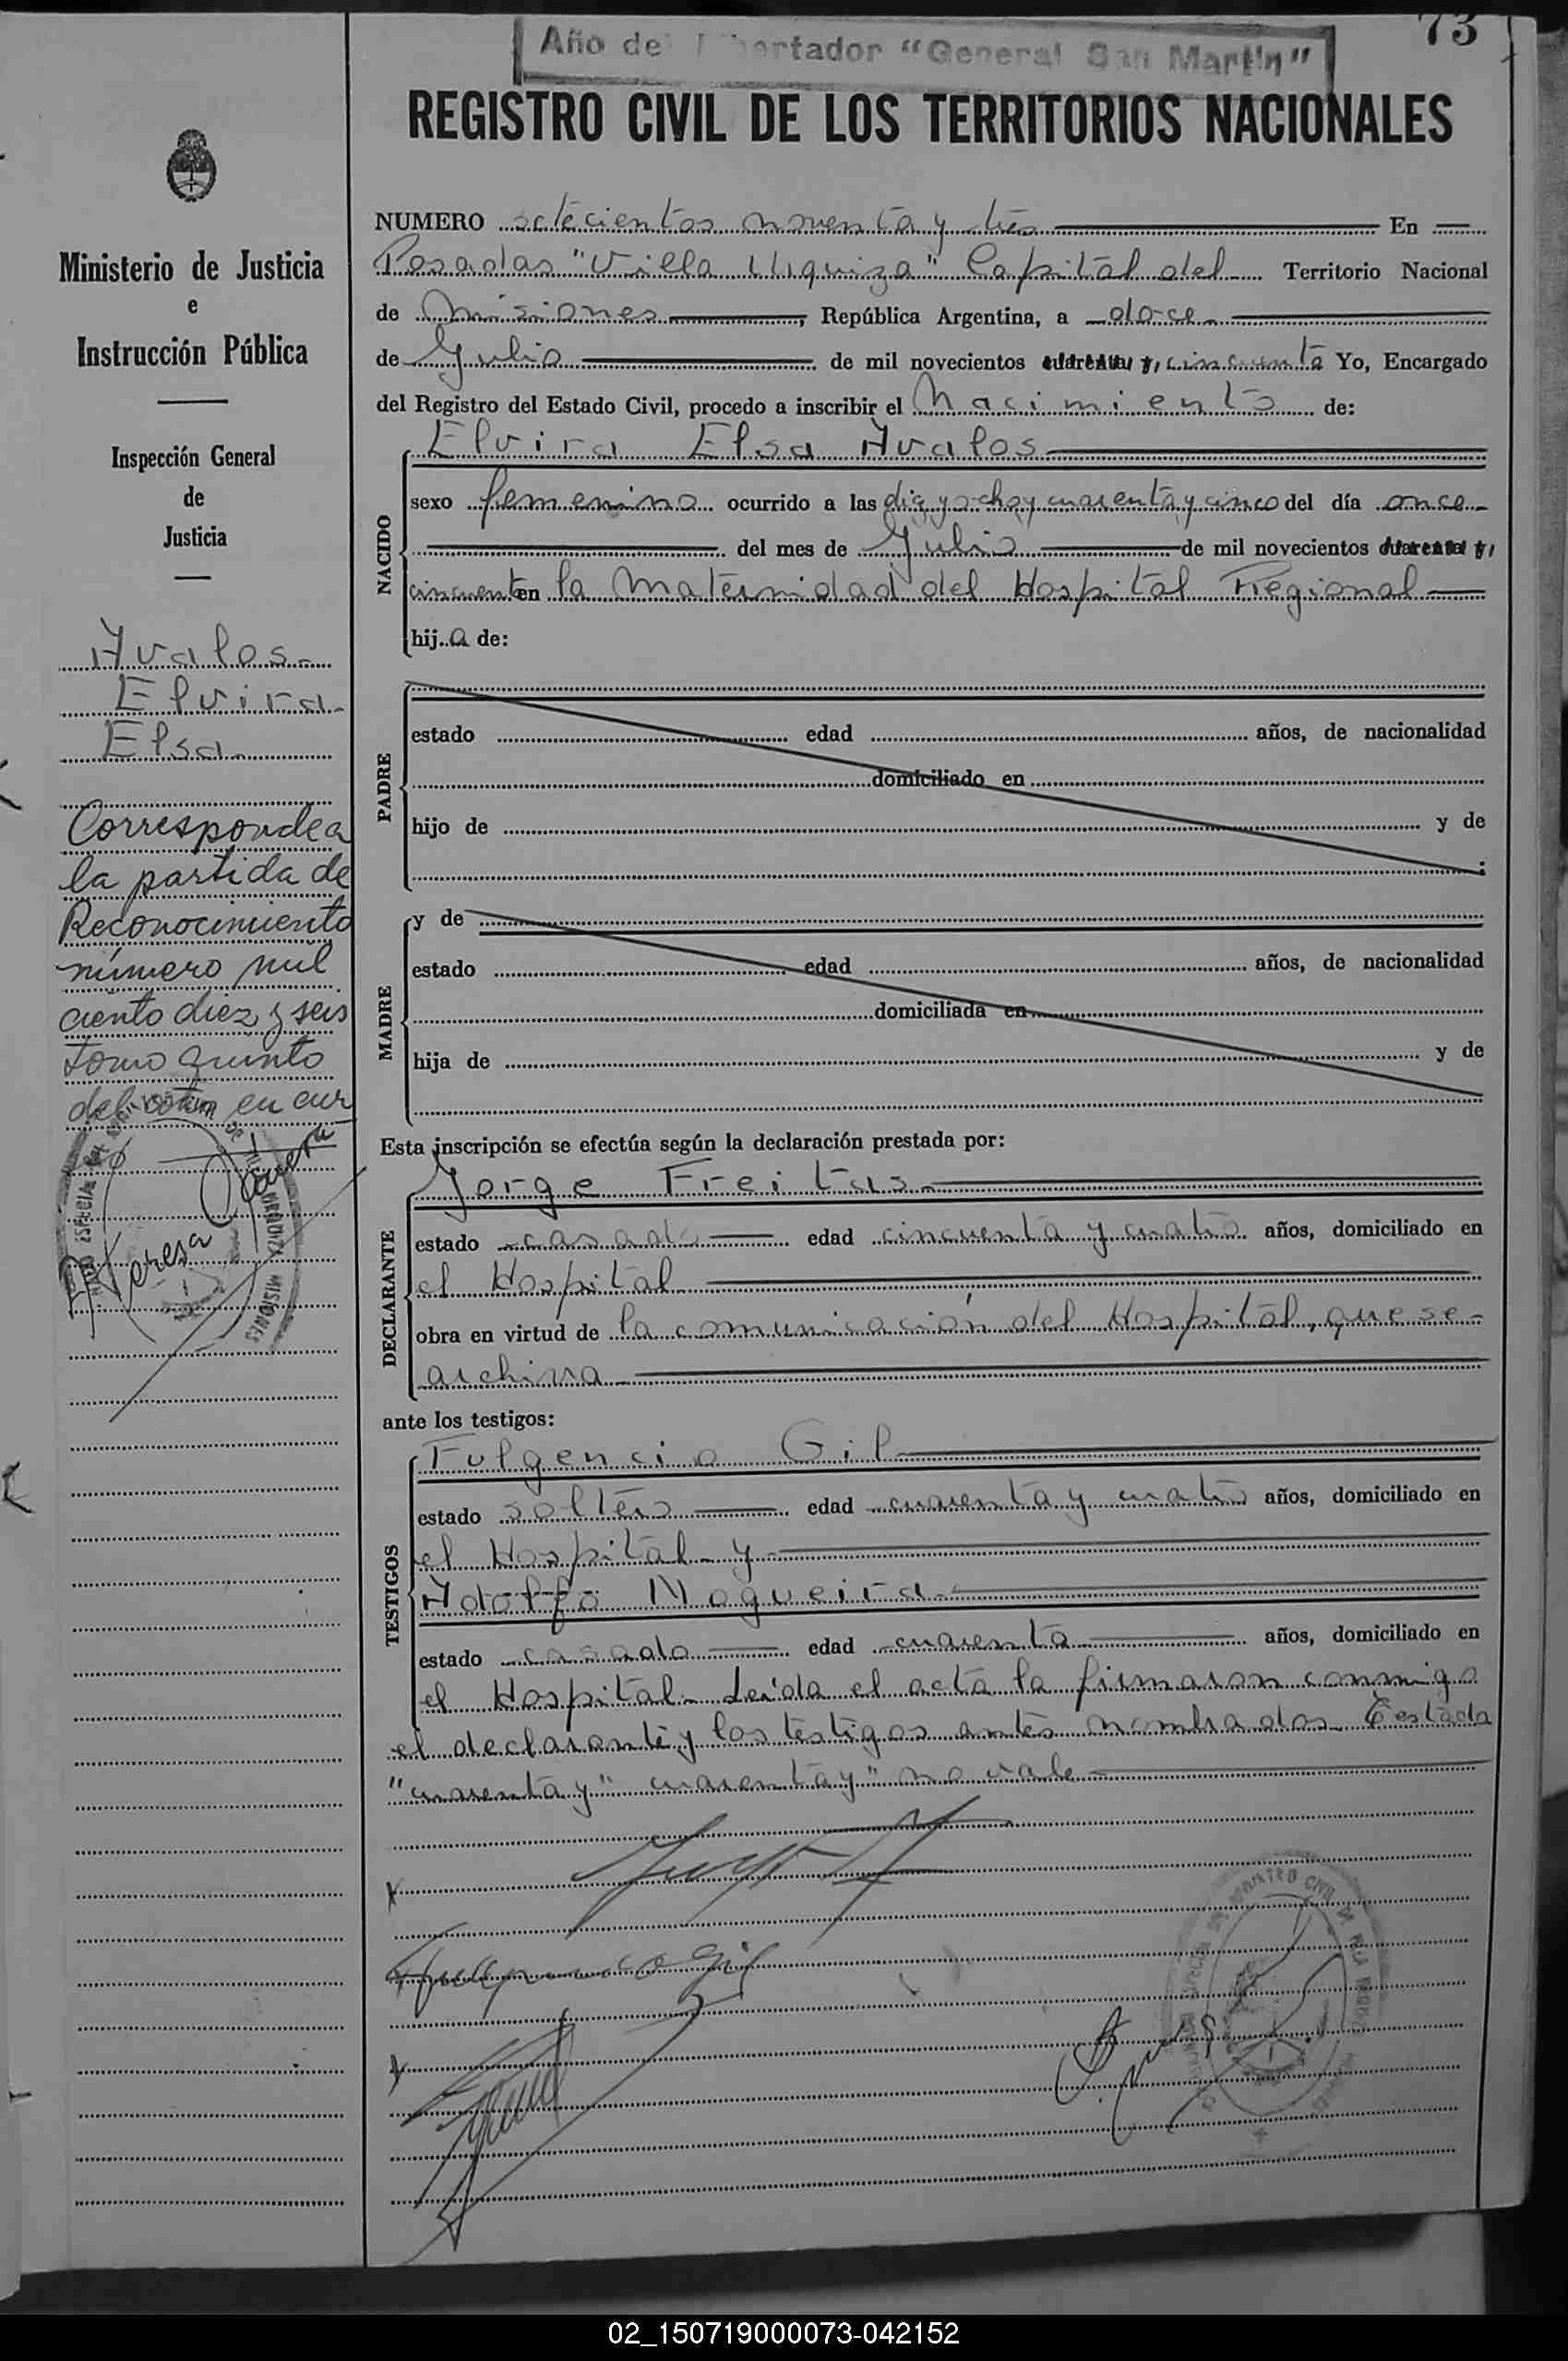 73
Año del Libertador "General San Martín"
REGISTRO CIVIL DE LOS TERRITORIOS NACIONALES
Ministerio de Justicia
e
Instrucción Pública
Inspección General
de
Justicia
Avalos.
Elvira.
Elsa.
Corresponde a
la partida de
Reconocimiento
número mil
ciento diez y seis
tomo quinto
del en cur
so
Teresa
NUMERO setecientos noventa y tres En
Posadas "Villa Urquiza" Capital del Territorio Nacional
de Misiones, República Argentina, a doce
de Julio de mil novecientos cuarenta y, cincuenta Yo, Encargado
del Registro del Estado Civil, procedo a inscribir el Nacimiento de:
Elvira Elsa Avalos
NACIDO
sexo femenino ocurrido a las diez y ocho y cuarenta y cinco del día once
del mes de Julio de mil novecientos cuarenta y,
cincuenta en la Maternidad del Hospital Regional
hij a de:
PADRE
estado edad años, de nacionalidad
domiciliado en
hijo de y de
MADRE
y de
estado edad años, de nacionalidad
domiciliada en
hija de y de
Esta inscripción se efectúa según la declaración prestada por:
DECLARANTE
Jorge Freitas
estado casado edad cincuenta y cuatro años, domiciliado en
el Hospital
obra en virtud de la comunicación del Hospital, que se
archiva
ante los testigos:
TESTIGOS
Fulgencio Gil
estado soltero edad cuarenta y cuatro años, domiciliado en
el Hospital y
Adolfo Nogueira
estado casado edad cuarenta años, domiciliado en
el Hospital. Leída el acta la firmaron conmigo
el declarante y los testigos antes nombrados. Testado
"cuarenta y" cuarenta y" no vale
Fulgencio Gil
02_150719000073-042152